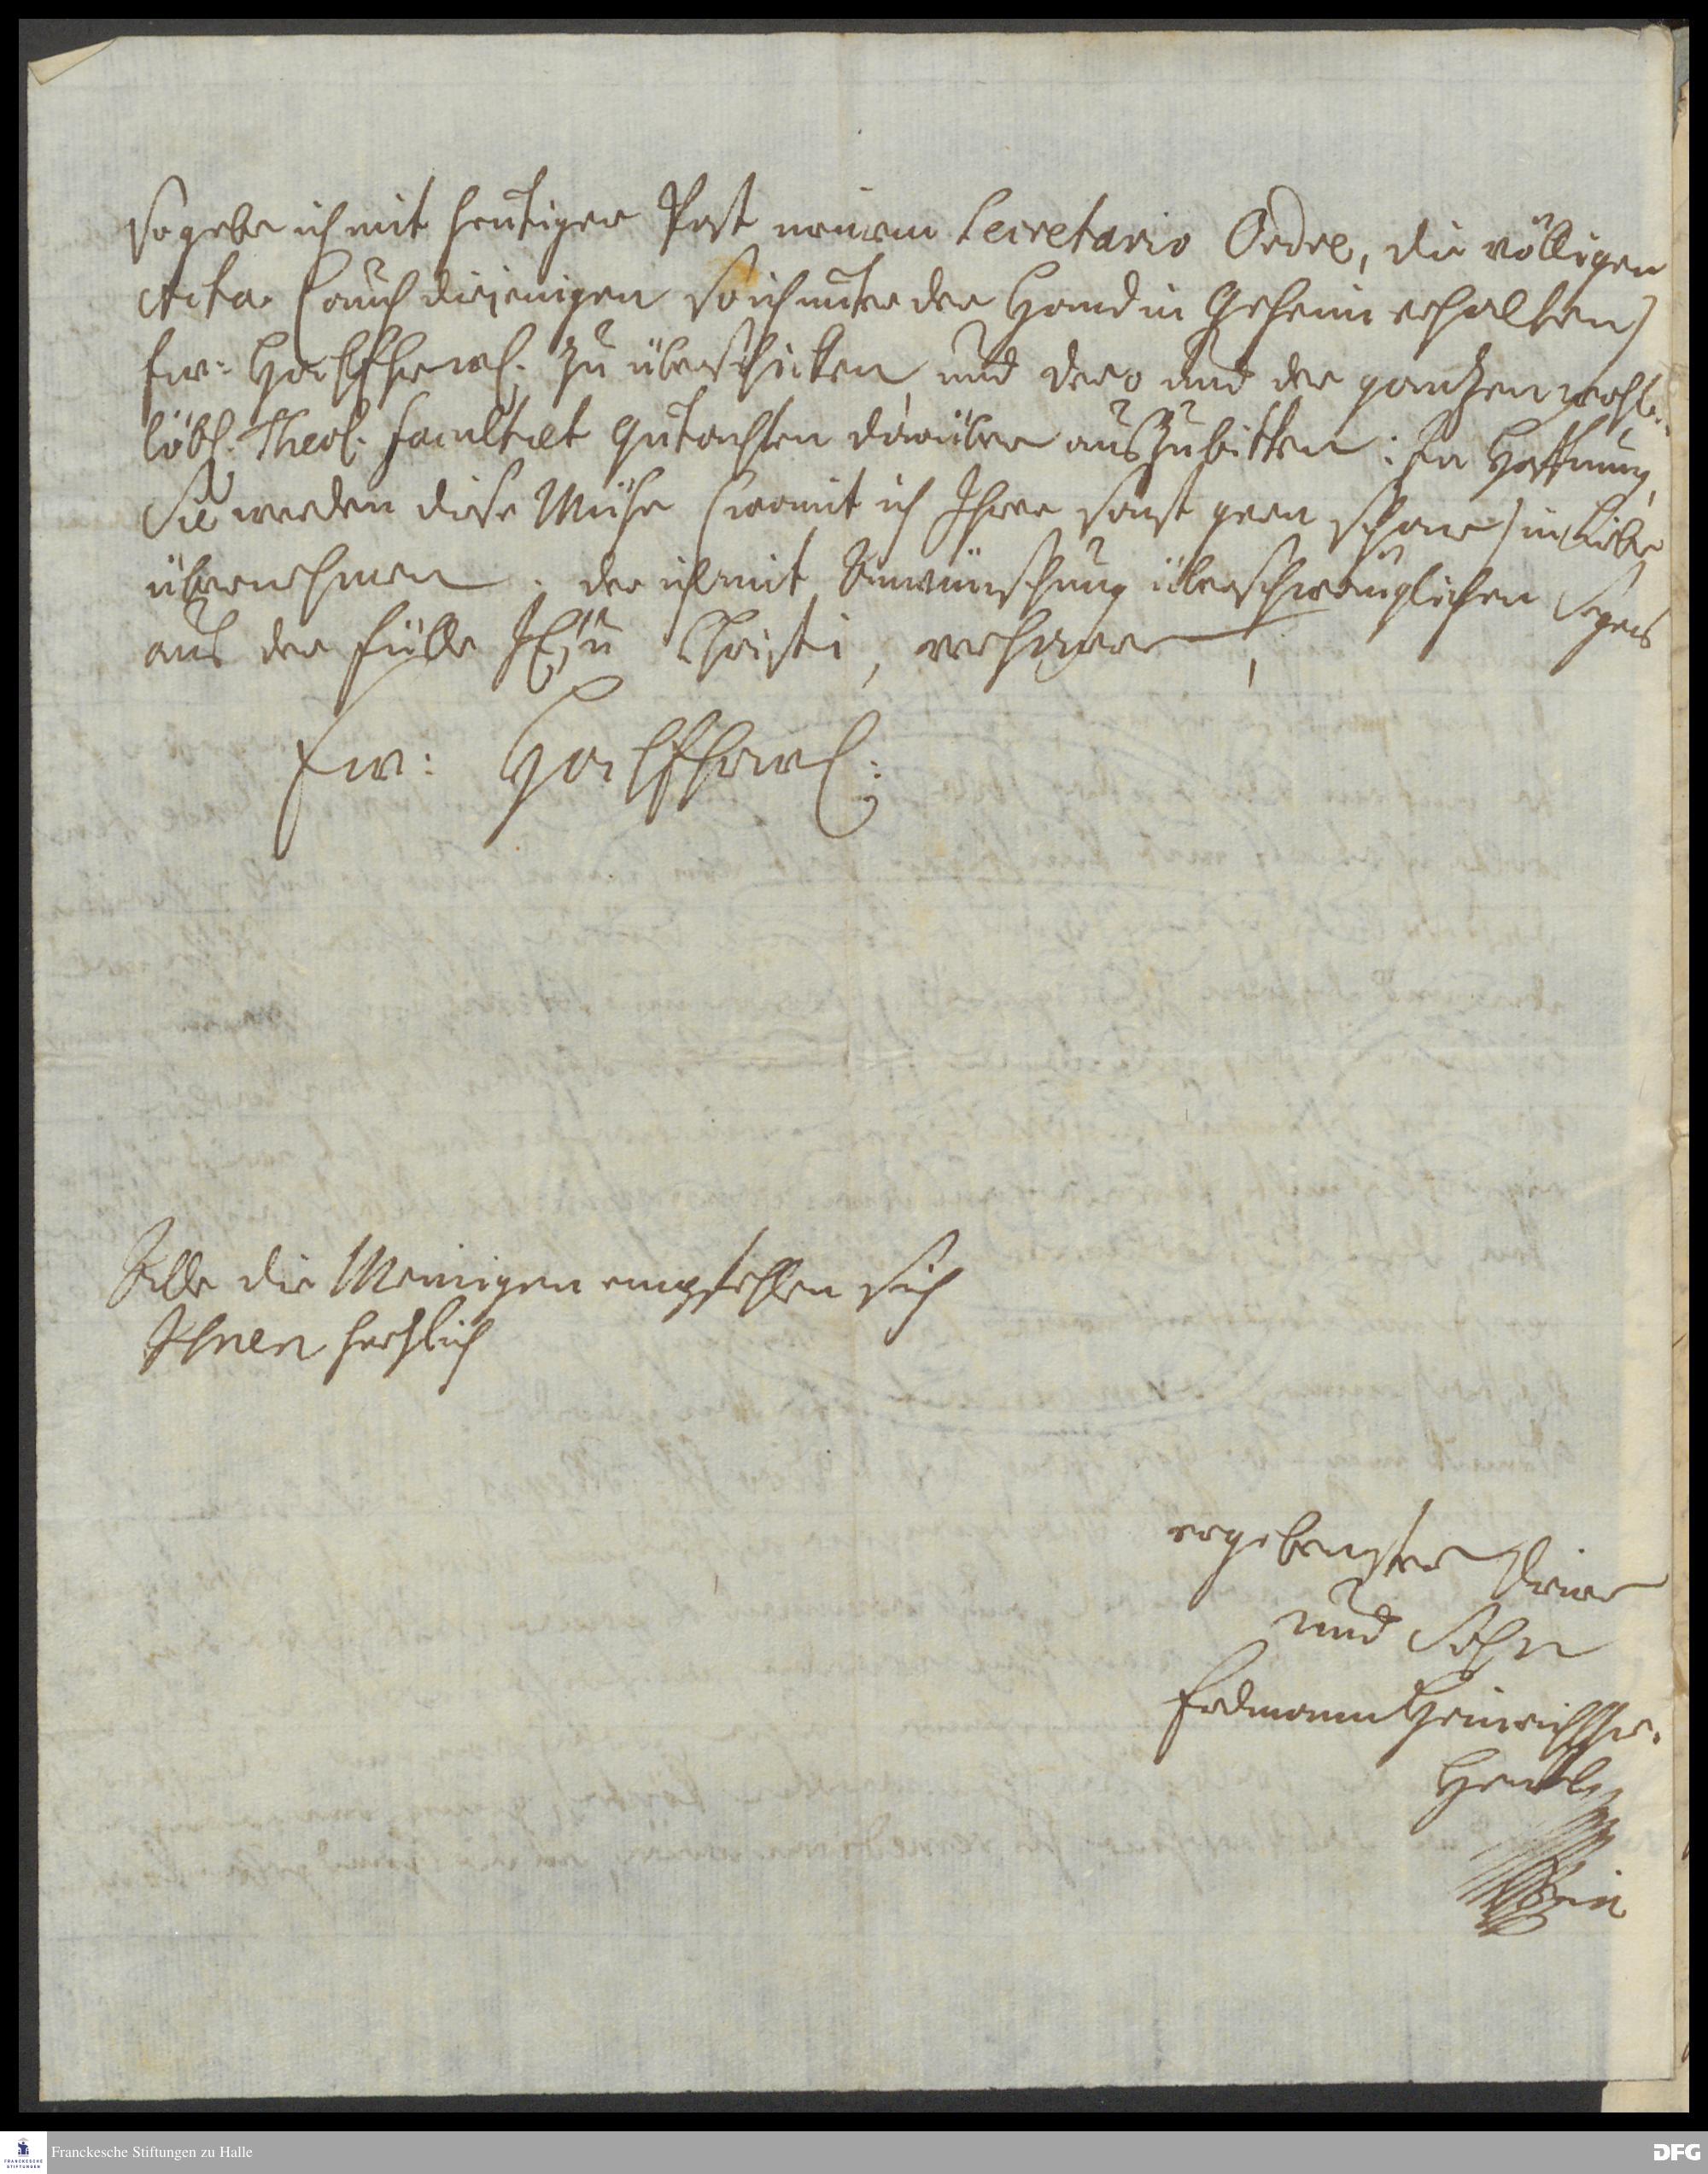 so gebe ich mit heutiger Post meinem Secretario Ordre, die völligen
Acta (auch diejenigen so ich unter der Hand in Geheim erhalten)
Ew: HochEhrwl. zu überschicken, und dero und der gantzen hochl.
löbl. Theol. Facultæt Gutachten darüber auszubitten: In Hoffnung,
Sie werden diese Mühe (womit ich Ihrer sonst gern schone) in Liebe
übernehmen. der ich mit Anwünschung überschwänglichen Segens
aus der Fülle JEsu Christi, verharre,
Ew: HochEhrwl:
Alle die Meinigen empfehlen sich
Ihnen hertzlich
ergebenster Diener
und Sohn
Erdmann Heinrich Gr.
Henckel
Franckesche Stiftungen zu Halle
DFG